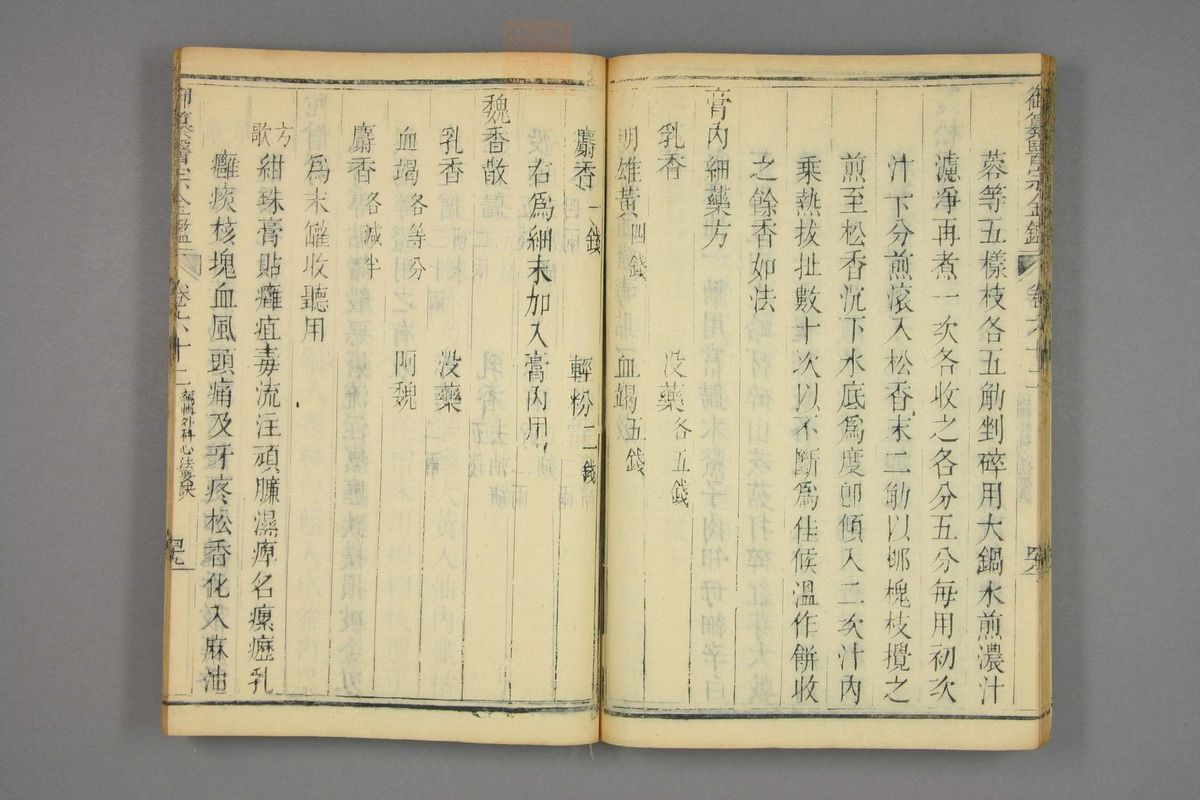 御纂醫宗金鑑
蓉等五樣枝各五觔剉碎用大鍋水煎濃汁
濾淨再煮一次各收之各分五分每用初次
汁一分煎滾入松香末二觔以桞槐枝攪之
煎至松香沉下水底為度卽傾入二次汁內
乘熱拔扯數十次以不斷為佳候溫作餅收
之餘香如法
膏內細藥方
乳香 没藥各五錢
明雄黃四錢 血竭五錢
麝香一錢 輕粉二錢
右為細末加入膏內用
魏香散
乳香 没藥
血竭各等分 阿魏
麝香各減半
為末罐收聽用
方歌 紺珠膏貼癰疽毒流注頑臁濕痺名瘰癧乳
癰痰核塊血風頭痛及牙疼松香化入麻油
御纂醫宗金鑑 卷六十二 編輯外科心法要訣